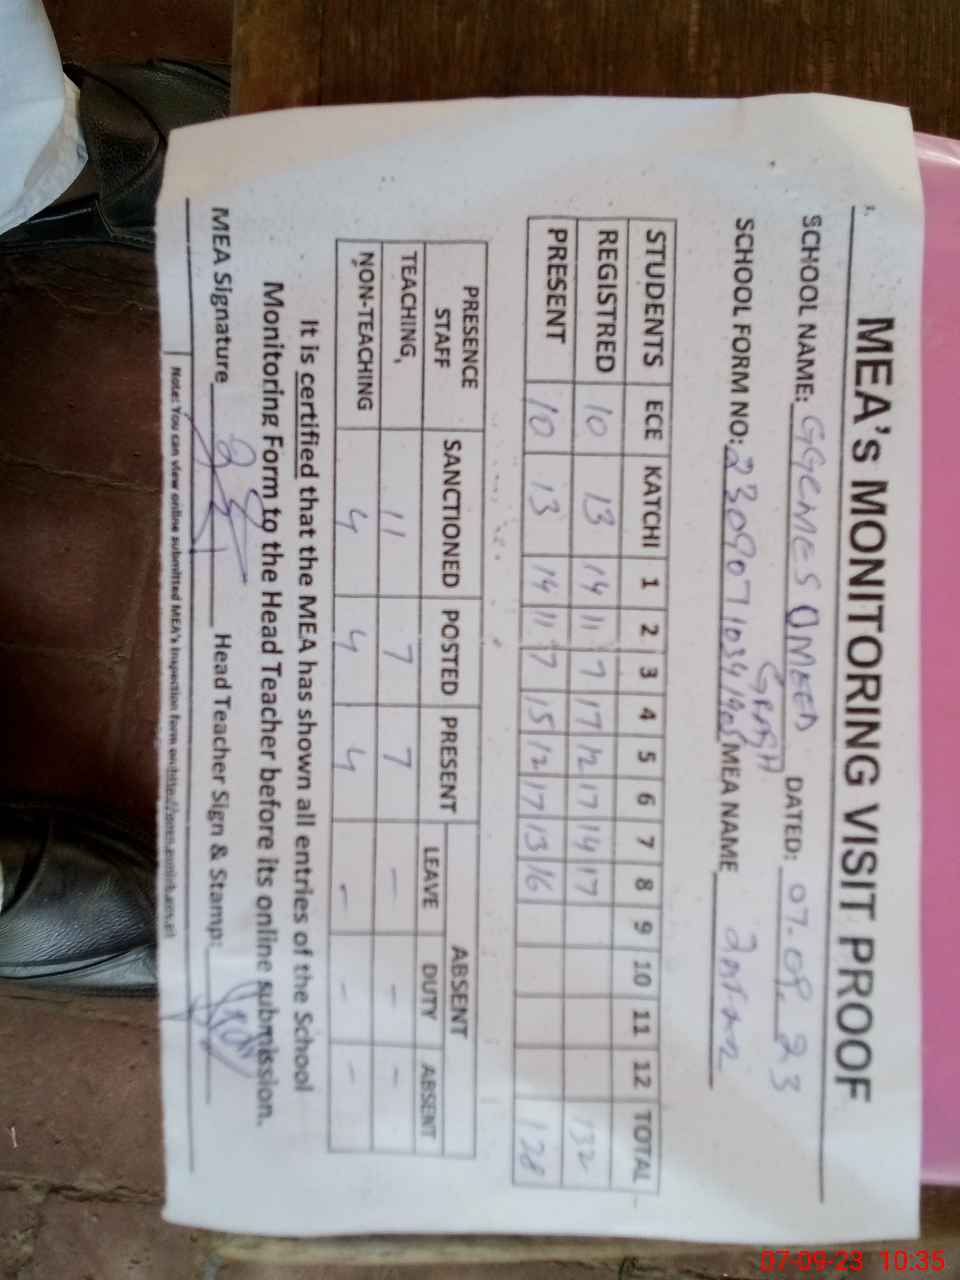 MEA's MONITORING VISIT PROOF
SCHOOL NAME: GGCMES OMEED DATED: 07.09.23
SCHOOL FORM NO: MEA NAME
STUDENTS ECE KATCHI 1 2 3 4 5 6 7 8 9 10 11 12 TOTAL
REGISTRED 10 13 14 11 7 17 12 17 14 17 132
PRESENT 10 13 14 11 7 15 12 17 13 16 128
PRESENCE STAFF SANCTIONED POSTED PRESENT ABSENT
LEAVE DUTY ABSENT
TEACHING, 11 7 7 - - -
NON-TEACHING 4 4 4 - - -
It is certified that the MEA has shown all entries of the School
Monitoring Form to the Head Teacher before its online submission.
MEA Signature Head Teacher Sign & Stamp:
Note: You can view online submitted MEA's Inspection form on
07-09-23 10:35